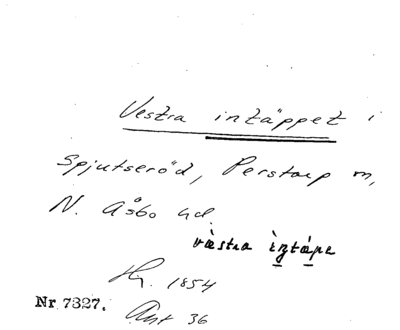 Vestra intäppet i
Spjutseröd, Perstorp m,
N. Åsbo hd.
västra ìntápe
Hy. 1854
Nr 7327.
Ant 36